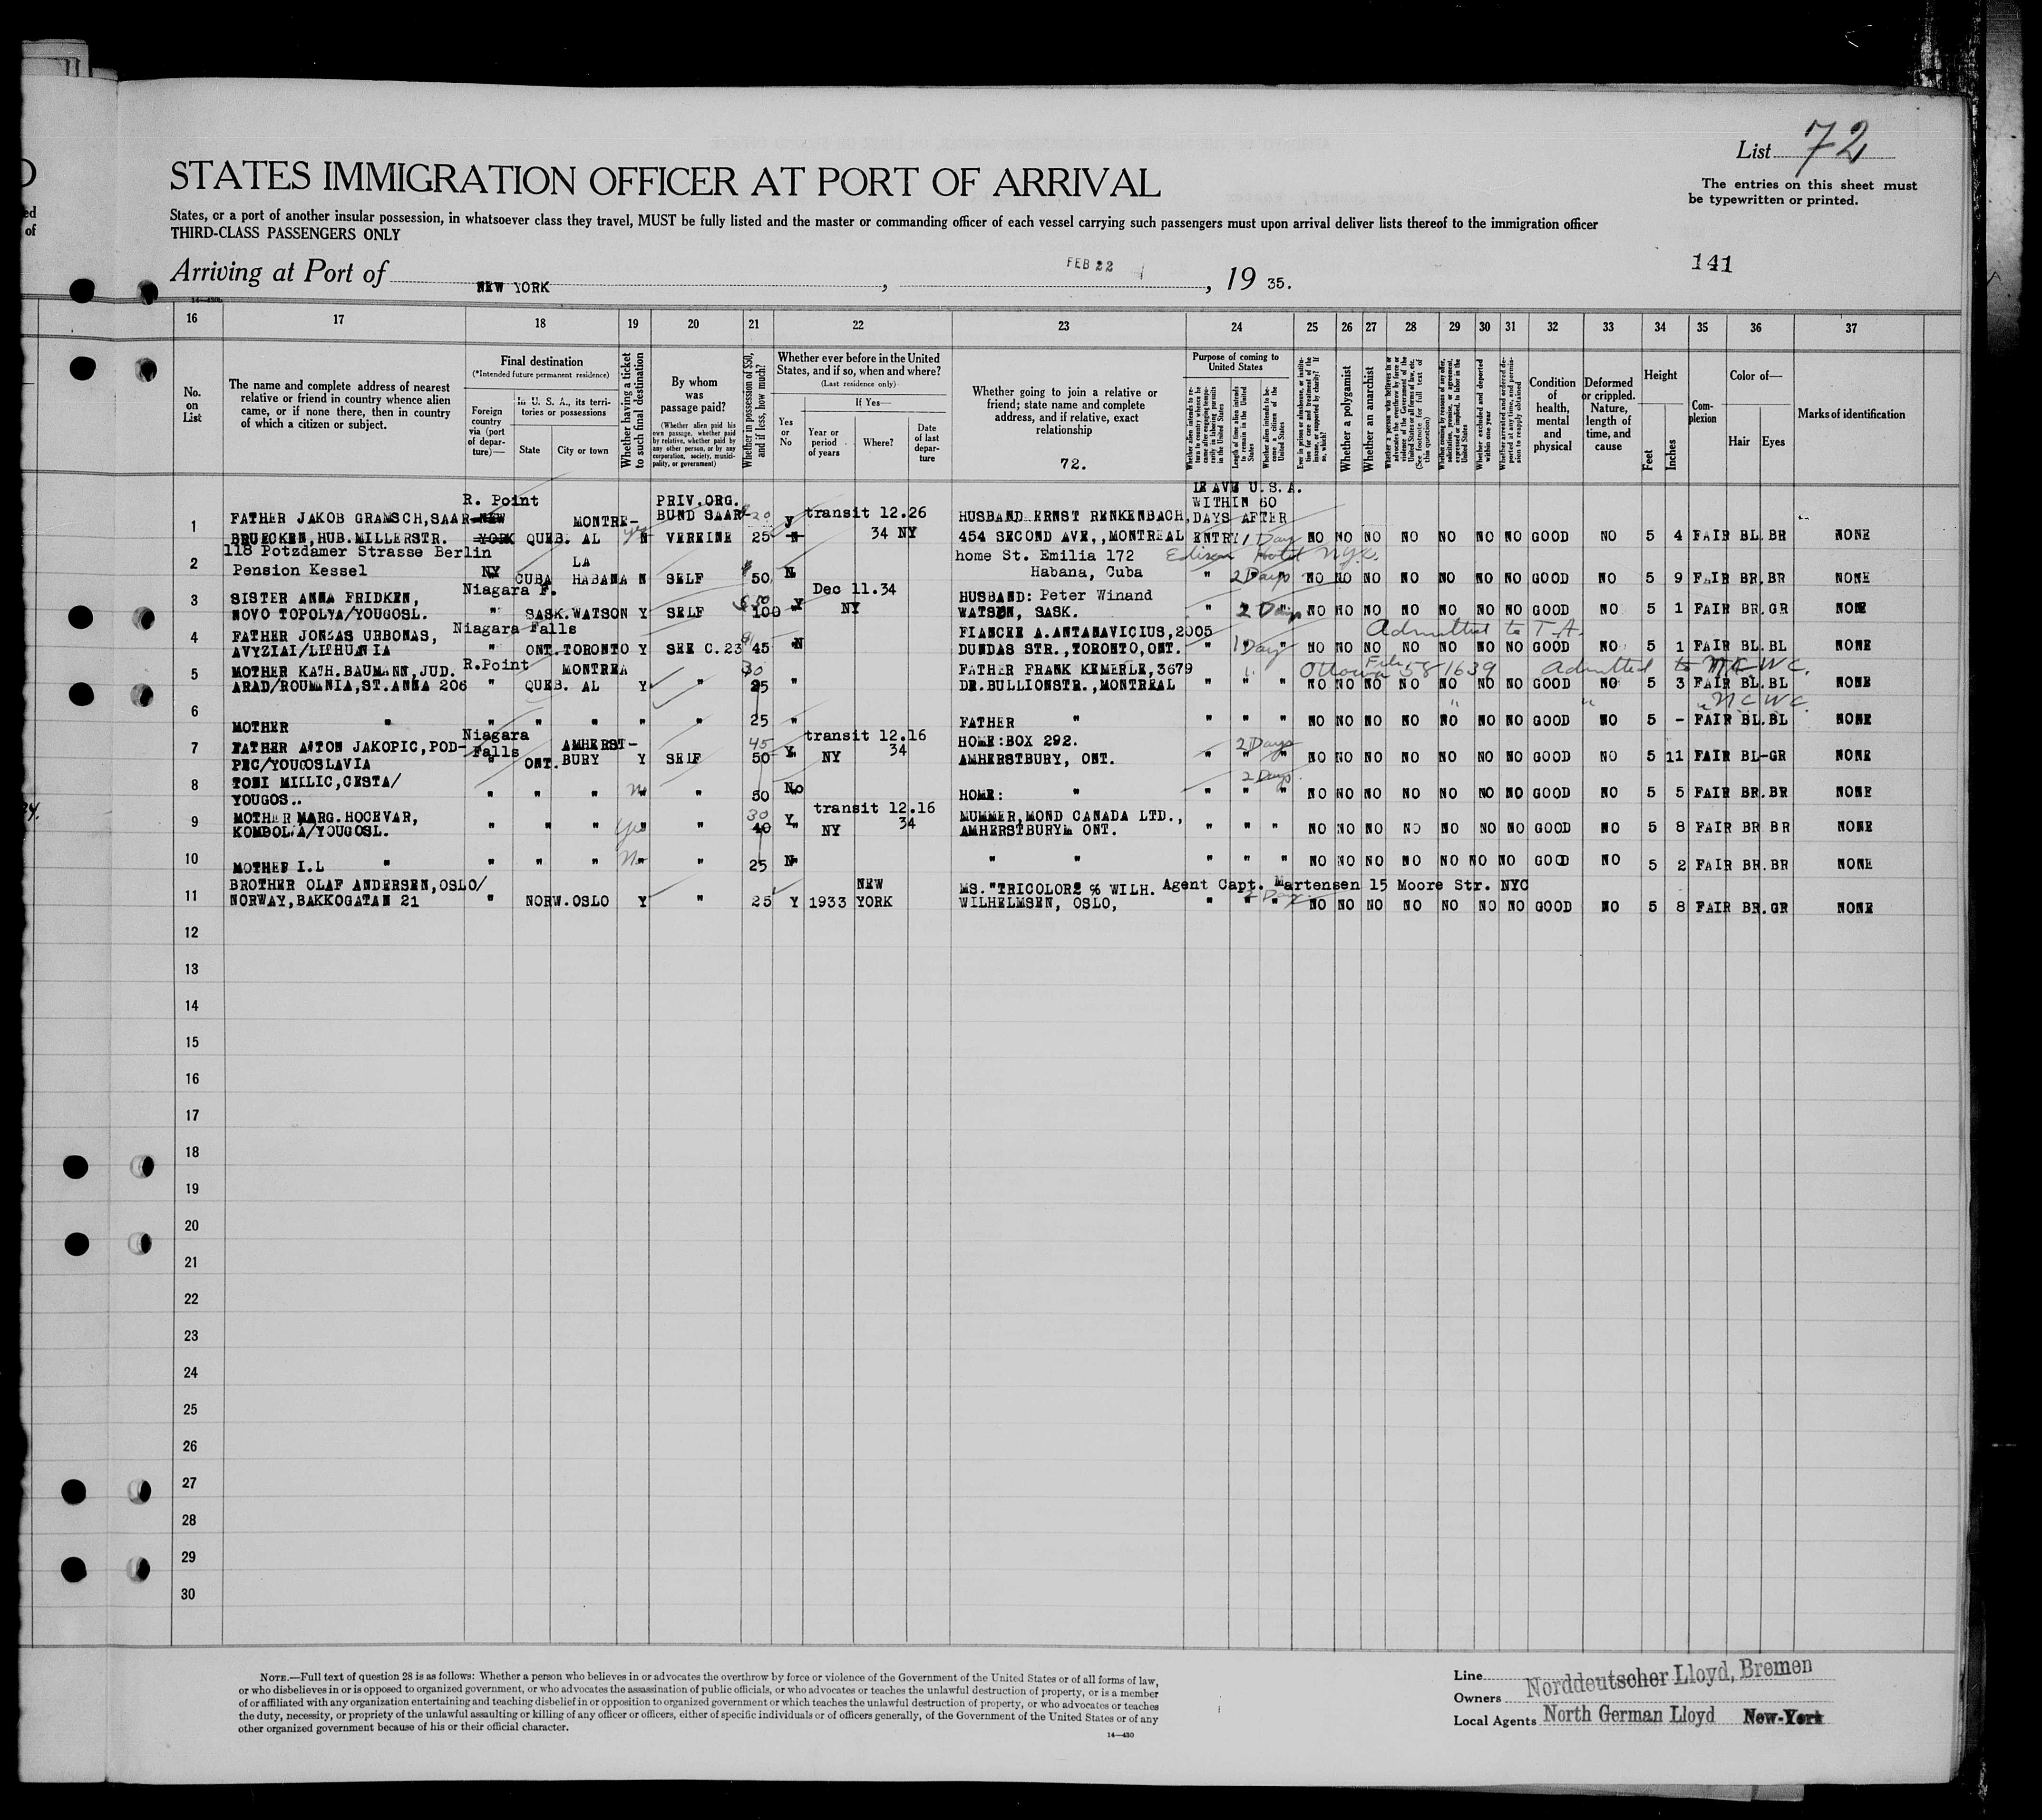 List 72
STATES IMMIGRATION OFFICER AT PORT OF ARRIVAL
The entries on this sheet must
be typewritten or printed.
States, or a port of another insular possession, in whatsoever class they travel, MUST be fully listed and the master or commanding officer of each vessel carrying such passengers must upon arrival deliver lists thereof to the immigration officer
THIRD-CLASS PASSENGERS ONLY
141
Arriving at Port of NEW YORK, FEB 22, 19 35.
16 17 18 19 20 21 22 23 24 25 26 27 28 29 30 31 32 33 34 35 36 37
No. on List
The name and complete address of nearest
relative or friend in country whence alien
came, or if none there, then in country
of which a citizen or subject.
Final destination
(*Intended future permanent residence)
Foreign country via (port of departure)—
In U. S. A., its territories or possessions
State City or town
Whether having a ticket to such final destination
By whom was passage paid?
(Whether alien paid his own passage, whether paid by relative, whether paid by any other person, or by any corporation, society, municipality, or government)
Whether in possession of $50, and if less, how much?
Whether ever before in the United
States, and if so, when and where?
(Last residence only)
Yes or No
If Yes—
Year or period of years Where? Date of last departure
Whether going to join a relative or
friend; state name and complete
address, and if relative, exact
relationship
72.
Purpose of coming to United States
Whether a polygamist
Whether an anarchist
Condition of health, mental and physical
Deformed or crippled. Nature, length of time, and cause
Height
Feet Inches
Complexion
Color of—
Hair Eyes
Marks of identification
LEAVE U.S.A.
R. Point PRIV.ORG. WITHIN 60
1 FATHER JAKOB GRAMSCH,SAAR- NEW MONTRE- BUND SAAR- 20 y transit 12.26 HUSBAND ERNST RENKENBACH, DAYS AFTER
BRUECKEN,HUB.MILLERSTR. YORK QUEB. AL N VEREINE 25 N 34 NY 454 SECOND AVE,,MONTREAL ENTRY 1 Day NO NO NO NO NO NO NO GOOD NO 5 4 FAIR BL.BR NONE
118 Potzdamer Strasse Berlin LA home St. Emilia 172 Edison Hotel NYC.
2 Pension Kessel NY CUBA HABANA N SELF 50 N Habana, Cuba " 2 Days NO NO NO NO NO NO NO GOOD NO 5 9 FAIR BR.BR NONE
Niagara F. Dec 11.34
3 SISTER ANNA FRIDKEN, HUSBAND: Peter Winand
NOVO TOPOLYA/YOUGOSL. " SASK.WATSON Y SELF 100 Y NY WATSON, SASK. " 2 Days NO NO NO NO NO NO NO GOOD NO 5 1 FAIR BR.GR NONE
Niagara Falls Admitted to T.A.
4 FATHER JONSAS URBONAS, FIANCEE A.ANTANAVICIUS,2005
AVYZIAI/LITHUANIA " ONT.TORONTO Y SEE C.23 45 N DUNDAS STR.,TORONTO,ONT. " 1 Day " NO NO NO NO NO NO NO GOOD NO 5 1 FAIR BL.BL NONE
5 MOTHER KATH.BAUMANN,JUD. R.Point MONTREA 30 FATHER FRANK KEMERLE,3679 Ottawa File 58 1639 Admitted to NC WC.
ARAD/ROUMANIA,ST.ANNA 206 " QUEB. AL Y " 25 " DR.BULLIONSTR.,MONTREAL " " " NO NO NO NO NO NO NO GOOD NO 5 3 FAIR BL.BL NONE
" " " NC WC.
6 MOTHER " " " " " " 25 " FATHER " " " " NO NO NO NO NO NO NO GOOD NO 5 - FAIR BL.BL NONE
7 FATHER ANTON JAKOPIC,POD- Niagara Falls AMHERST- 45 transit 12.16 HOME:BOX 292. 2 Days
PEC/YOUGOSLAVIA " ONT. BURY Y SELF 50 Y NY 34 AMHERSTBURY, ONT. " " " NO NO NO NO NO NO NO GOOD NO 5 11 FAIR BL-GR NONE
8 TONI MILLIC,CESTA/ 2 Days
YOUGOS.. " " " No " 50 No HOME: " " " " NO NO NO NO NO NO NO GOOD NO 5 5 FAIR BR.BR NONE
9 MOTHER MARG.HOCEVAR, 30 transit 12.16 MUMMER,MOND CANADA LTD.,
KOMBOLJA/YOUGOSL. " " " Yes " 40 Y NY 34 AMHERSTBURYM ONT. " " " NO NO NO NO NO NO NO GOOD NO 5 8 FAIR BR BR NONE
10 MOTHER I.L " " " " No " 25 N " " " " " NO NO NO NO NO NO NO GOOD NO 5 2 FAIR BR.BR NONE
11 BROTHER OLAF ANDERSEN,OSLO/ NEW MS."TRICOLORE % WILH. Agent Capt. Martensen 15 Moore Str. NYC
NORWAY,BAKKOGATAN 21 " NORW.OSLO Y " 25 Y 1933 YORK WILHELMSEN, OSLO, " " " NO NO NO NO NO NO NO GOOD NO 5 8 FAIR BR.GR NONE
12
13
14
15
16
17
18
19
20
21
22
23
24
25
26
27
28
29
30
NOTE.—Full text of question 28 is as follows: Whether a person who believes in or advocates the overthrow by force or violence of the Government of the United States or of all forms of law,
or who disbelieves in or is opposed to organized government, or who advocates the assassination of public officials, or who advocates or teaches the unlawful destruction of property, or is a member
of or affiliated with any organization entertaining and teaching disbelief in or opposition to organized government or which teaches the unlawful destruction of property, or who advocates or teaches
the duty, necessity, or propriety of the unlawful assaulting or killing of any officer or officers, either of specific individuals or of officers generally, of the Government of the United States or of any
other organized government because of his or their official character.
14—430
Line Norddeutscher Lloyd, Bremen
Owners
Local Agents North German Lloyd New-York